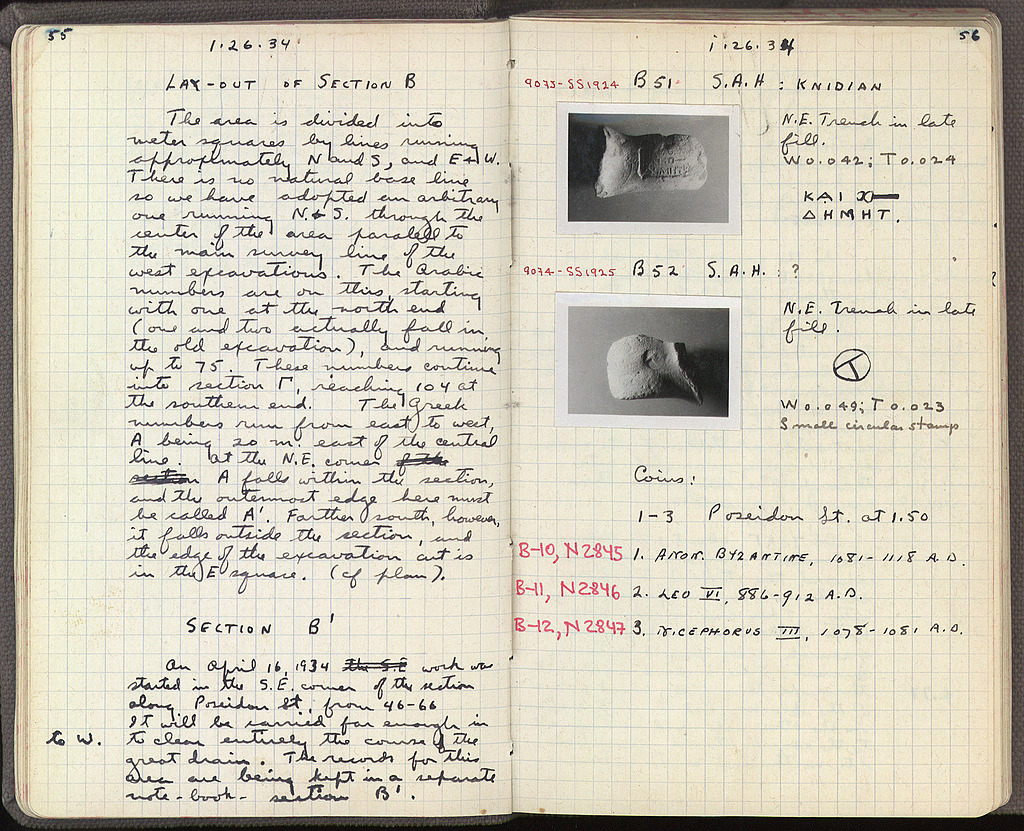 55
1.26.34
LAY-OUT OF SECTION B
The area is divided into
meter squares by lines running
approximately N and S, and E & W.
There is no natural base line
so we have adopted an arbitrary
one running N. & S. through the
center of the area parallel to
the main survey line of the
west excavations. The Arabic
numbers are on this, starting
with one at the north end
(one and two actually fall in
the old excavation), and running
up to 75. These numbers continue
into section Γ, reaching 104 at
the southern end. The Greek
numbers run from east to west,
A being 20 m. east of the central
line. At the N.E. corner of the
section A falls within the section,
and the outermost edge here must
be called A'. Farther south, however,
it falls outside the section, and
the edge of the excavation cut is
in the E square. (cf plan).
SECTION B'
On April 16, 1934 the S.E work was
started in the S.E. corner of the section
along Poseidon St. from 46-66
It will be carried far enough in
to W. to clear entirely the course of the
great drain. The records for this
area are being kept in a separate
note-book - section B'.
56
1.26.34
9073-SS1924 B 51 S.A.H : KNIDIAN
N.E. Trench in late
fill.
W 0.042; T 0.024
ΚΑΙ
ΔΗΜΗΤ.
9074-SS1925 B 52 S.A.H. : ?
N.E. Trench in late
fill.
W 0.049; T 0.023
Small circular stamp
Coins:
1-3 Poseidon St. at 1.50
B-10, N2845 1. ANON. BYZANTINE, 1081-1118 A.D.
B-11, N2846 2. LEO VI, 886-912 A.D.
B-12, N2847 3. NICEPHORUS III, 1078-1081 A.D.